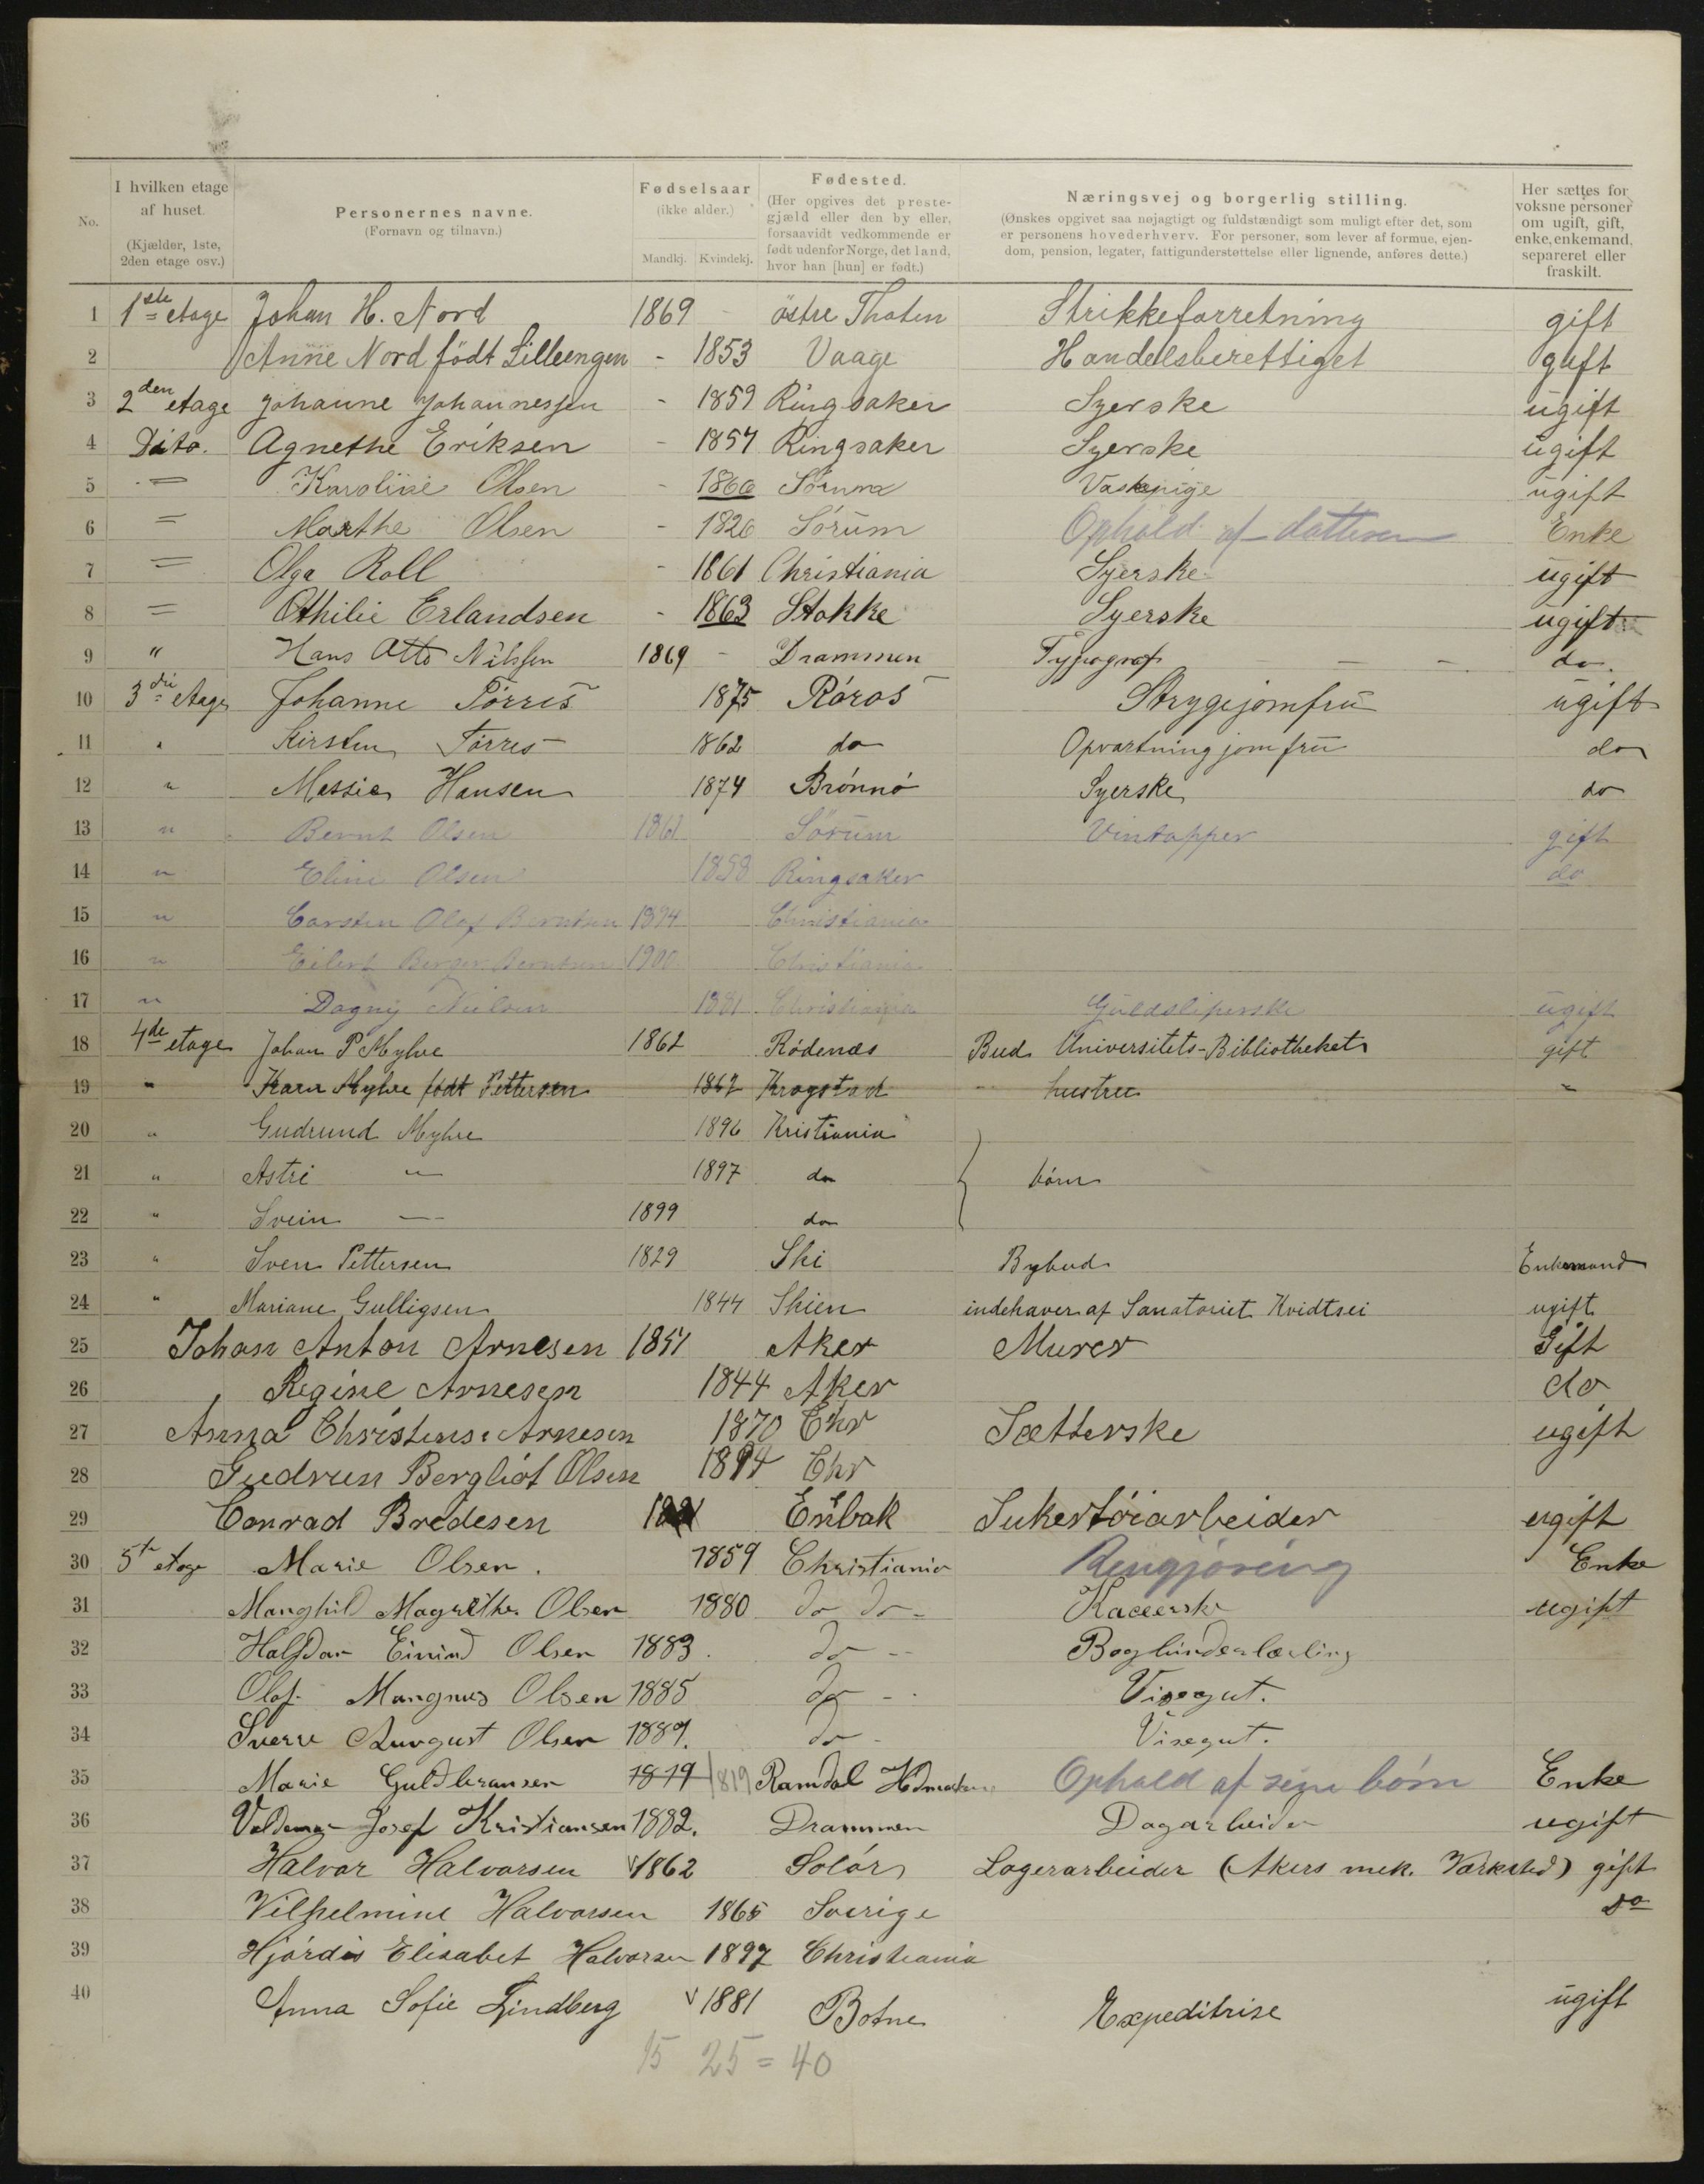 No.
I hvilken etage af huset. (Kjælder, 1ste, 2den etage osv.)
Personernes navne. (Fornavn og tilnavn.)
Fødselsaar (ikke alder.) Mandkj. Kvindekj.
Fødested. (Her opgives det prestegjæld eller den by eller, forsaavidt vedkommende er født udenfor Norge, det land, hvor han [hun] er født.)
Næringsvej og borgerlig stilling. (Ønskes opgivet saa nøjagtigt og fuldstændigt som muligt efter det, som er personens hovederhverv. For personer, som lever af formue, ejendom, pension, legater, fattigunderstøttelse eller lignende, anføres dette.)
Her sættes for voksne personer om ugift, gift, enke, enkemand, separeret eller fraskilt.
1 1ste etage Johan H. Nord 1869 - östre Thoten Strikkeforretning gift
2 Anne Nord födt Lilleengen - 1853 Vaage Handelsberettiget gift
3 2den etage Johanne Johannessen - 1859 Ringsaker Syerske ugift
4 Dito. Agnethe Eriksen - 1857 Ringsaker Syerske ugift
5 = Karoline Olsen - 1866 Sörum Vaskepige ugift
6 = Marthe Olsen - 1826 Sörum Ophold af datteren Enke
7 = Olga Roll - 1861 Christiania Syerske ugift
8 = Othilie Erlandsen - 1863 Stokke Syerske ugift
9 " Hans Otto Nilssen 1869 - Drammen Typograf - - do.
10 3die etage Johanne Törres 1875 Röros Strygejomfru ugift
11 " Kirsten Törres 1862 do Opvartningjomfru do
12 " Messie Hansen 1874 Brönnö Syerske do
13 " Bernt Olsen 1861 Sörum Vintapper gift
14 " Eline Olsen 1858 Ringsaker do
15 " Carsten Olaf Berntsen 1894 Christiania
16 " Eilert Berger Berntsen 1900 Christiania
17 " Dagny Nielsen 1881 Christiania Guldsliperske ugift
18 4de etage Johan P Myhre 1862 Rödenæs Bud Universitets-Bibliotheket gift
19 " Karen Myhre födt Pettersen 1862 Krogstad hustru "
20 " Gudrund Myhre 1896 Kristiania
21 " Astri " 1897 do börn
22 " Svein - 1899 do
23 " Sven Pettersen 1829 Ski Bybud Enkemand
24 " Mariane Gulligsen 1844 Skien indehaver af Sanatoriet Kvidtsei ugift
25 Johan Anton Arnesen 1851 Aker Murer Gift
26 Regine Arnesen 1844 Aker do
27 Anna Christense Arnesen 1870 Chr Sætterske ugift
28 Gudrun Bergliot Olsen 1894 Chr
29 Conrad Bredesen Enbak Sukertöiarbeider ugift
30 5te etage Marie Olsen. 1859 Christiania Rengjöring Enke
31 Manghild Magrethe Olsen 1880 do do - ugift
32 Halfdan Eivind Olsen 1883. do - Bogbinderlærling
33 Olaf Mangnus Olsen 1885 do - Visergut.
34 Sverre Aungust Olsen 1889. do - Visegut.
35 Marie Guldbransen 1819 1819 Ramdal Hedmarken Ophold af sine börn Enke
36 Valdemar Josef Kristiansen 1882. Drammen Dagarbeider ugift
37 Halvor Halvorsen 1862 Solör Lagerarbeider (Akers mek. Værksted) gift
38 Vilhelmine Halvorsen 1865 Sverige do
39 Hjördis Elisabet Halvorsen 1897 Christiania
40 Anna Sofie Lindberg 1881 Botne Expeditrise ugift
15 25 = 40